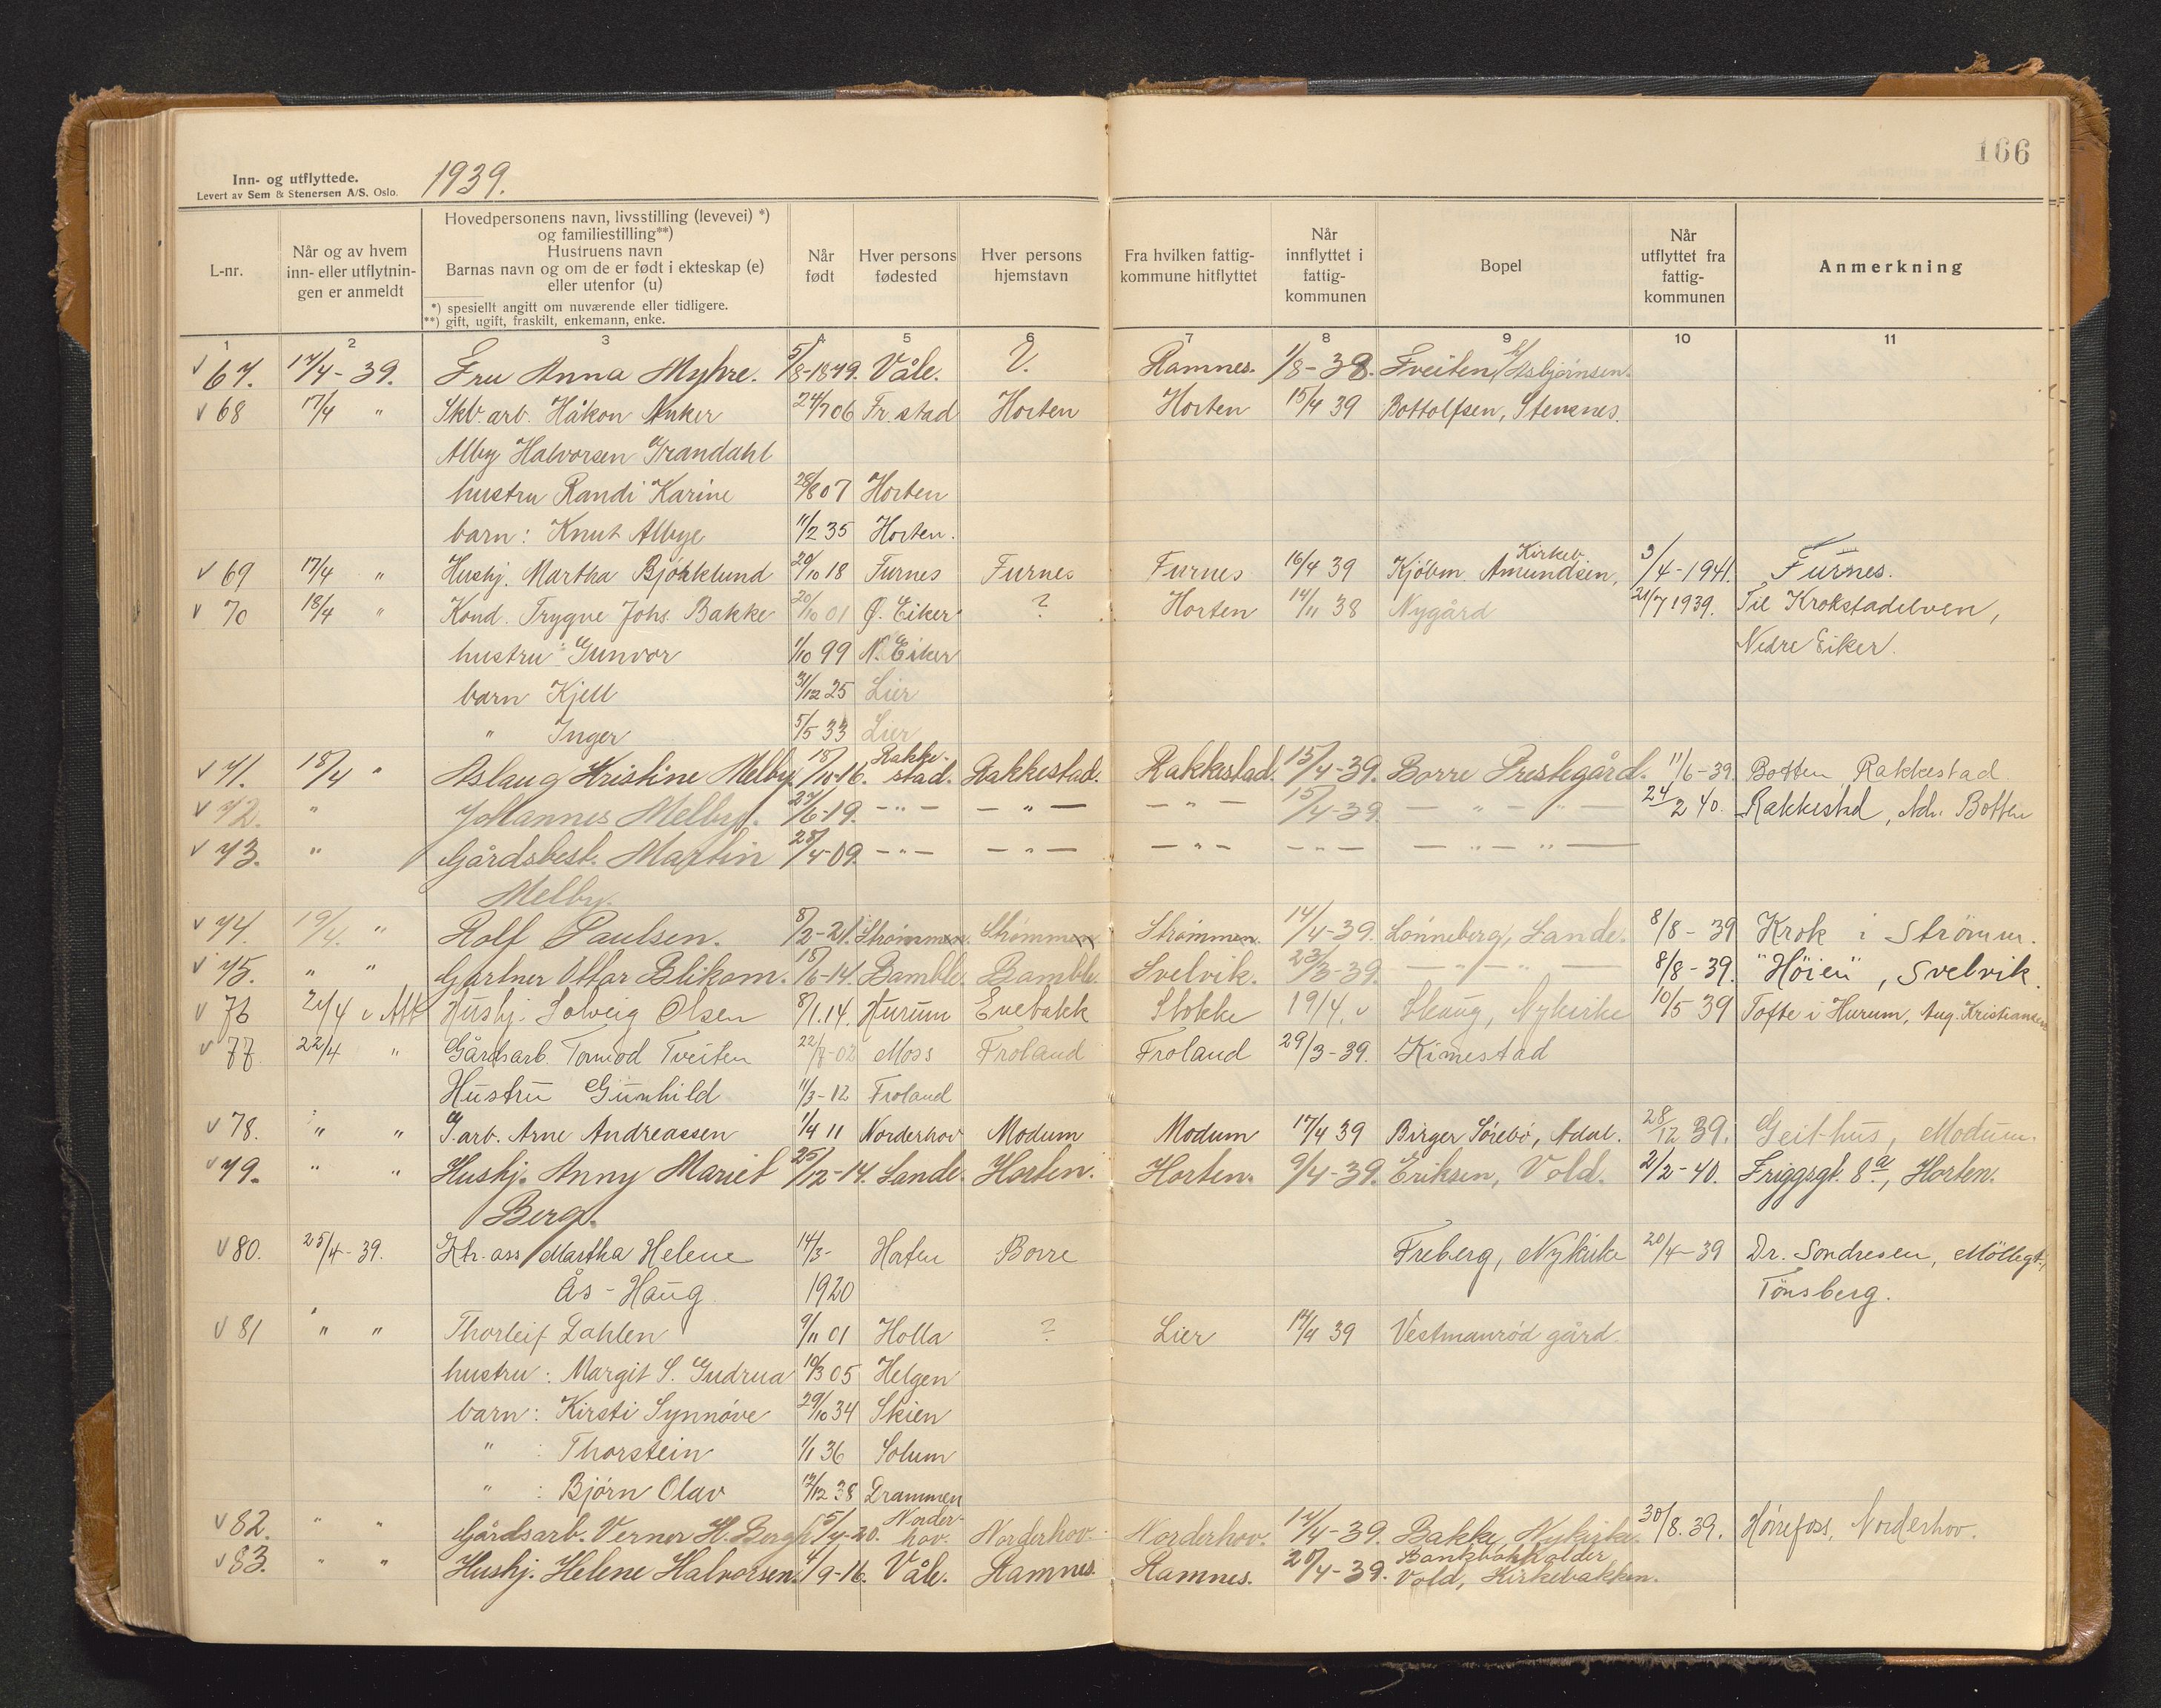 166
Inn- og utflyttede.
Levert av Sem & Stenersen A/S. Oslo.
1939.
L-nr.
Når og av hvem inn- eller utflytnin- gen er anmeldt
Hovedpersonens navn, livsstilling (levevei) *)
og familiestilling**)
Hustruens navn
Barnas navn og om de er født i ekteskap (e)
eller utenfor (u)
*) spesiellt angitt om nuværende eller tidligere.
**) gift, ugift, fraskilt, enkemann, enke.
Når født
Hver persons fødested
Hver persons hjemstavn
Fra hvilken fattig- kommune hitflyttet
Når innflyttet i fattig- kommunen
Bopel
Når utflyttet fra fattig- kommunen
Anmerkning
1 2 3 4 5 6 7 8 9 10 11
v 67. 17/4-39. Fru Anna Myhre. 5/8-1879. Våle. V. Ramnes. 1/8-38. Tveiten, Asbjørnsen.
v 68 17/4 " Skb. arb. Håkon Anker 24/7 06 Fr.stad Horten Horten 15/4 39 Bottolfsen, Stensnes.
Alby Halvorsen Grandahl
hustru Randi Karine 28/8 07 Horten
barn: Knut Albye 11/2 35 Horten.
v 69 17/4 " Hushj. Martha Bjørklund 20/10 18 Furnes Furnes Furnes 16/4 39 Kjøbm. Amundsen, Kirkeb. 3/4-1941. Furnes.
v 70 18/4 " Kond. Trygve Johs. Bakke 20/10 01 Ø. Eiker ? Horten 14/11 38 Nygård 21/7 1939. Til Krokstadelven,
hustru Gunvor 1/10 99 N. Eiker Nedre Eiker.
barn Kjell 31/12 25 Lier
" Inger 5/5 33 Lier
v 71. 18/4 " Aslaug Kristine Melby. 18/10-16. Rakke- stad. Rakkestad. Rakkestad. 15/4-39. Borre Prestegård. 11/6-39 Botten, Rakkestad
v 72. " Johannes Melby. 27/6-19. — " — — " — — " — 15/4-39. — " — " — 24/2 40. Rakkestad, Adr. Botten
v 73. " Gårdsbest. Martin 28/4-09. — " — — " — — " — — " — — " — " —
Melby.
v 74. 19/4. " Rolf Paulsen. 8/2-21. Strømmen. Strømmen Strømmen. 14/4-39. Lønneberg, Sande. 8/8-39 Krok i Strømm.
v 75. " " Gartner Ottar Blikom. 18/6-14. Bamble. Bamble. Svelvik. 23/3-39. — " — " — 8/8-39. "Höien", Svelvik.
v 76 21/4 v Att Hushj. Solveig Olsen 8/1.14. Hurum Enebakk Stokke 19/4. v Skaug, Nykirke 10/5 39 Tofte i Hurum, Aug. Kristiansen
v 77. 22/4 " Gårdsarb. Tormod Tveiten 22/7-02 Moss Froland Froland 29/3-39. Kimestad
Hustru Gunhild 11/3-12 Froland
v 78. " " G.arb. Arne Andreassen 1/4 11 Norderhov Modum Modum 17/4 39 Birger Sörebö, Adal. 28/12 39. Geithus, Modum.
v 79. " " Hushj. Anny Mariet 25/12-14. Sande. Horten. Horten. 9/4-39. Eriksen, Vold. 2/2-40. Friggsgt. 8a, Horten.
Berg.
v 80. 25/4-39. Ktr. ass Martha Helene 14/3- Horten Borre Freberg, Nykirke 20/4-39 Dr. Sondresen, Möllegt.,
Ås-Haug 1920 Tönsberg.
v 81 " " Thorleif Dahlen 9/11 01 Holla ? Lier 14/4 39 Vestmanrød gård.
hustru: Margit S. Gudrua 10/3 05 Helgen
barn: Kirsti Synnøve 29/10 34 Skien
" : Thorstein 1/1 36 Solum
" : Bjørn Olav 12/12 38 Drammen
v 82. " " Gårdsarb. Verner H. Bergh 5/4-20. Norder- hov. Norderhov. Norderhov. 14/4-39. Bakke, Nykirke. 30/8.39. Hønefoss, Norderhov.
v 83. " " Hushj. Helene Halvorsen. 4/9-16. Våle. Ramnes. Ramnes. 20/4-39. Bankbokholder Vold, Kirkebakken.